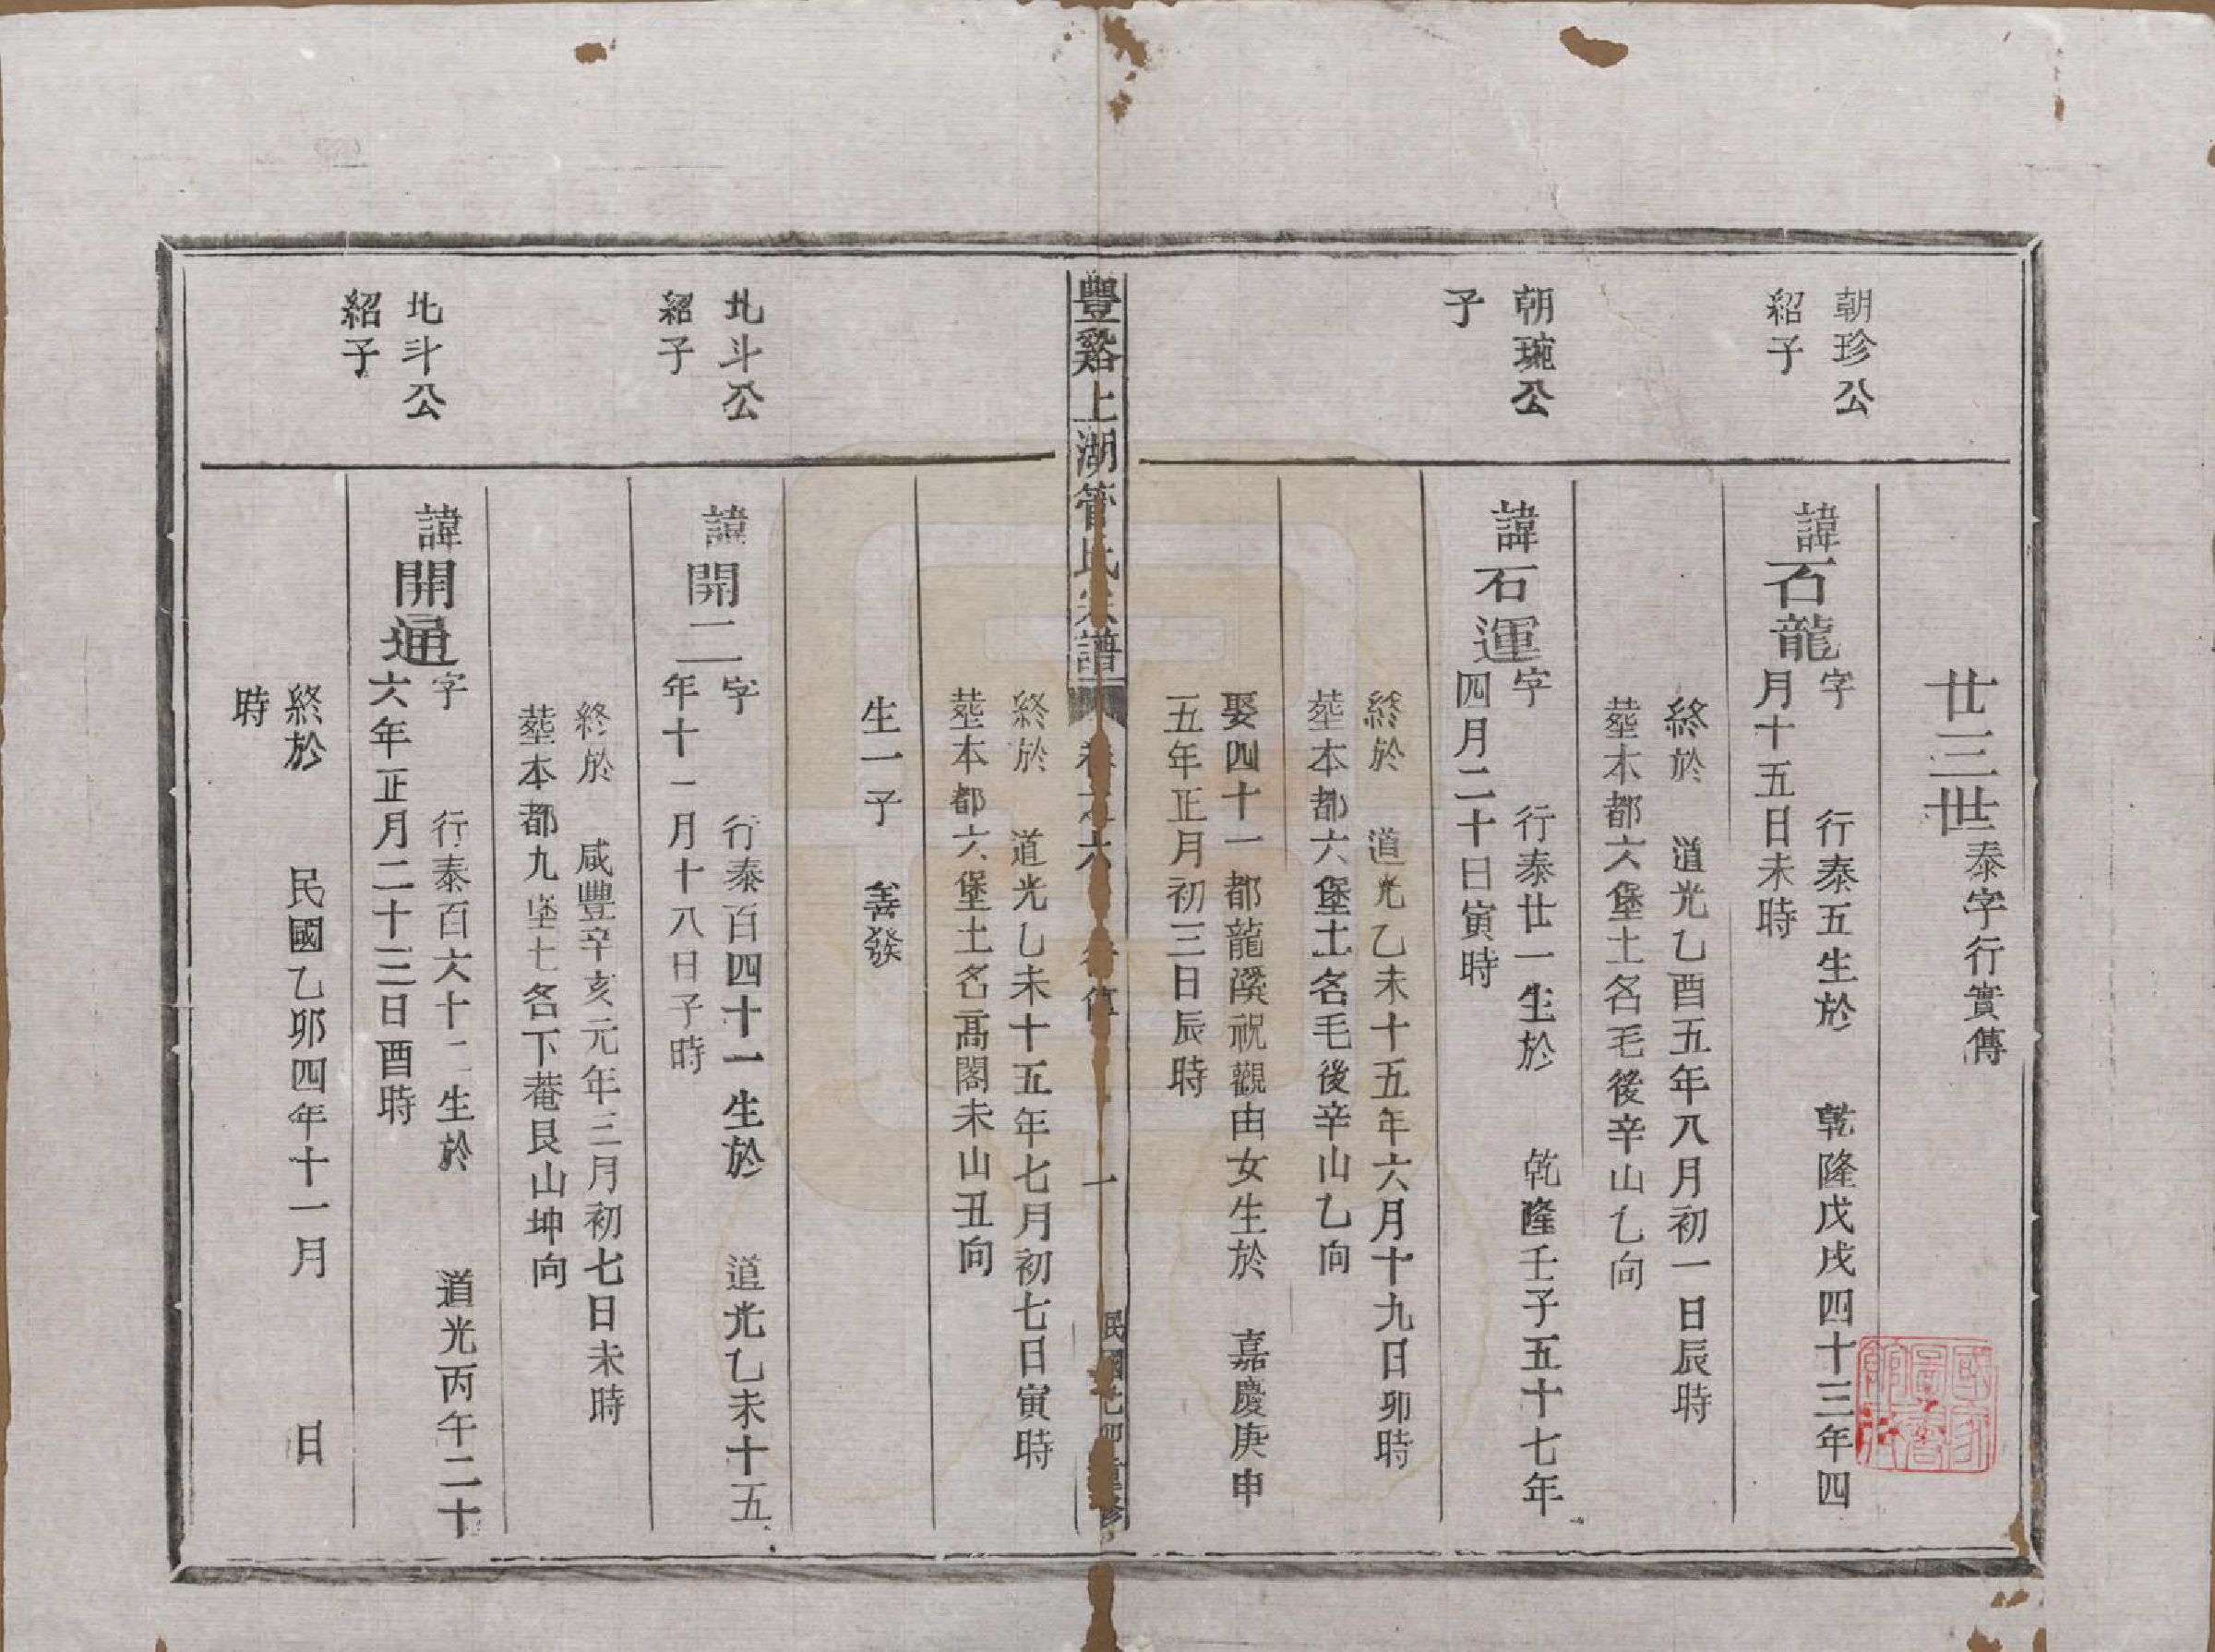 廿三世泰字行實傳
朝珍公
紹子
諱石龍字 行泰五生於 乾隆戊戌四十三年四
月十五日未時
終於 道光乙酉五年八月初一日辰時
塟本都六堡土名毛後辛山乙向
朝琬公
子
諱石運字 行泰廿一生於 乾隆壬子五十七年
四月二十日寅時
終於 道光乙未十五年六月十九日卯時
塟本都六堡土名毛後辛山乙向
娶四十一都龍溪祝觀由女生於 嘉慶庚申
五年正月初三日辰時
豐谿上湖管氏宗譜 卷之六 一 民國乙卯重修
終於 道光乙未十五年七月初七日寅時
塟本都六堡土名高閣未山丑向
生一子 善發
北斗公
紹子
諱開二字 行泰百四十一生於 道光乙未十五
年十一月十八日子時
終於 咸豐辛亥元年三月初七日未時
塟本都九堡七名下菴艮山坤向
北斗公
紹子
諱開通字 行泰百六十二生於 道光丙午二十
六年正月二十三日酉時
終於 民國乙卯四年十一月 日
時
國家圖書館藏